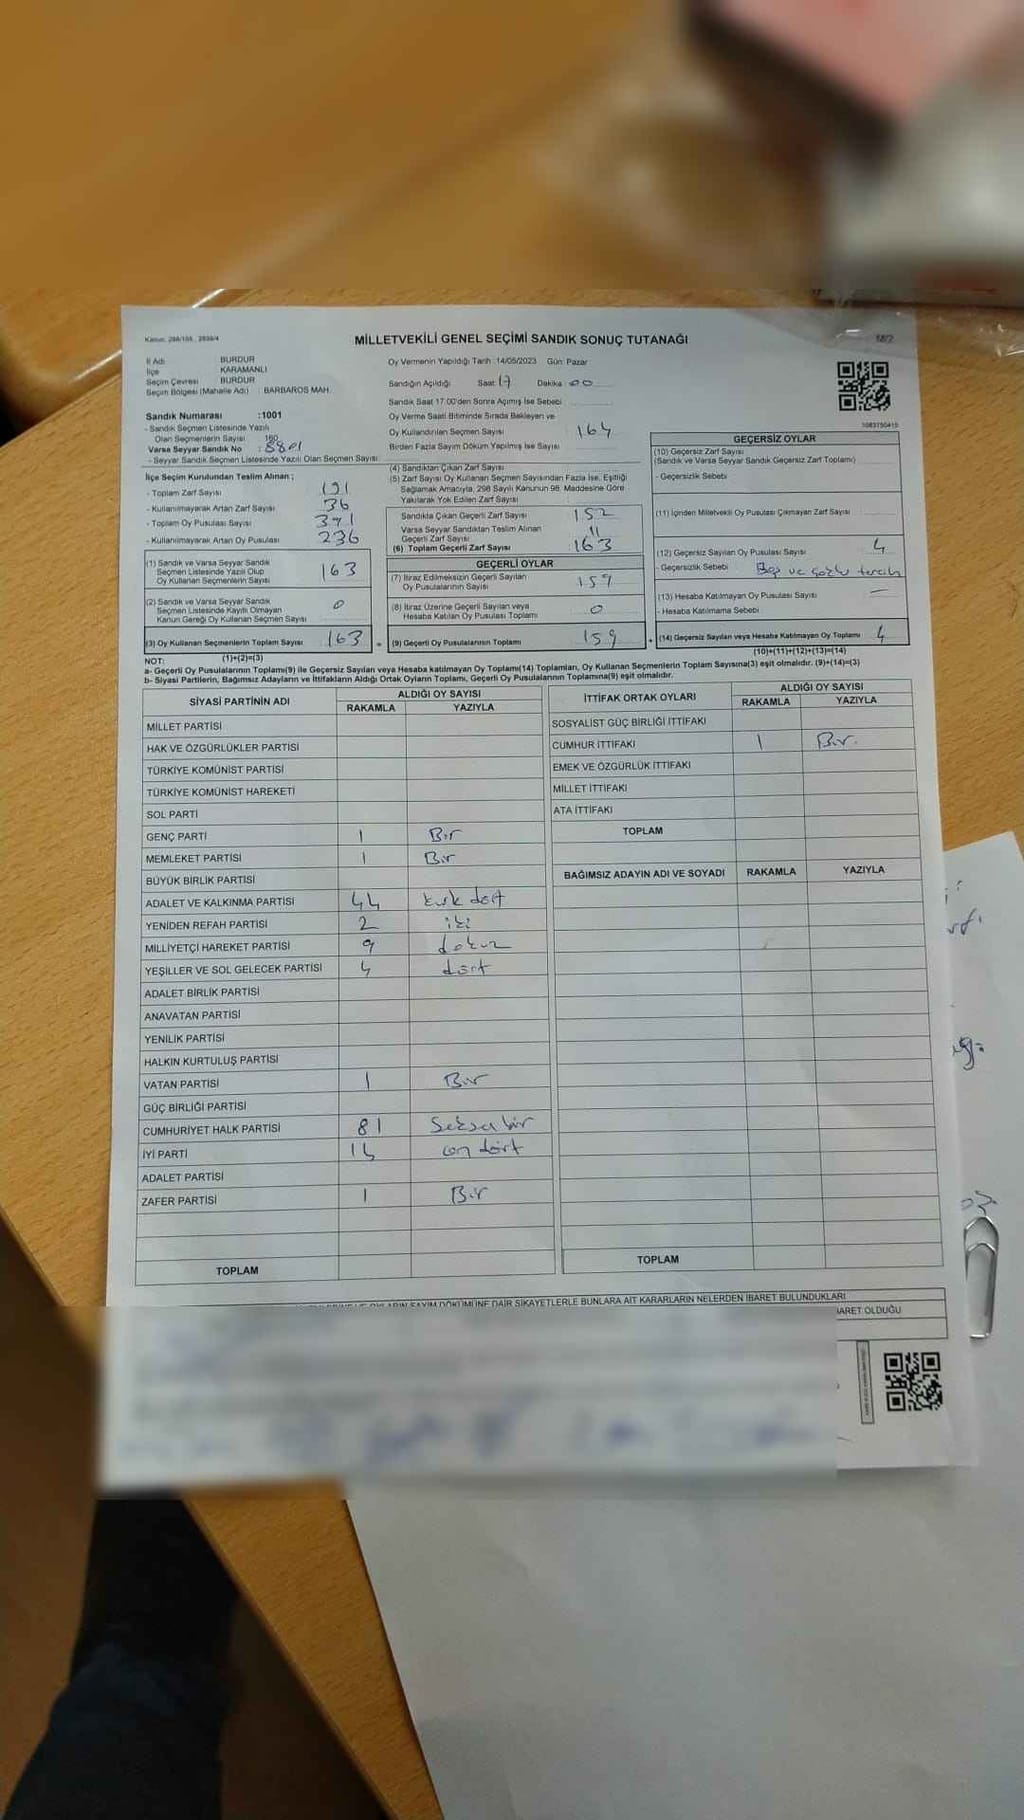 Kanun: 298/105, 2839/4
MİLLETVEKİLİ GENEL SEÇİMİ SANDIK SONUÇ TUTANAĞI
İl Adı BURDUR
İlçe KARAMANLI
Seçim Çevresi BURDUR
Seçim Bölgesi (Mahalle Adı) : BARBAROS MAH.
Sandık Numarası :1001
- Sandık Seçmen Listesinde Yazılı
Olan Seçmenlerin Sayısı
Varsa Seyyar Sandık No : 8801
- Seyyar Sandık Seçmen Listesinde Yazılı Olan Seçmen Sayısı
İlçe Seçim Kurulundan Teslim Alınan ;
- Toplam Zarf Sayısı 191
- Kullanılmayarak Artan Zarf Sayısı 36
- Toplam Oy Pusulası Sayısı 391
- Kullanılmayarak Artan Oy Pusulası 236
(1) Sandık ve Varsa Seyyar Sandık
Seçmen Listesinde Yazılı Olup
Oy Kullanan Seçmenlerin Sayısı 163
(2) Sandık ve Varsa Seyyar Sandık
Seçmen Listesinde Kayıtlı Olmayan
Kanun Gereği Oy Kullanan Seçmenlerin Sayısı 0
(3) Oy Kullanan Seçmenlerin Toplam Sayısı 163 =
(1)+(2)=(3)
Oy Vermenin Yapıldığı Tarih :14/05/2023 Gün: Pazar
Sandığın Açıldığı Saat 17 Dakika 00
Sandık Saat 17.00'den Sonra Açılmış İse Sebebi
Oy Verme Saati Bitiminde Sırada Bekleyen ve
Oy Kullandırılan Seçmen Sayısı 164
Birden Fazla Sayım Döküm Yapılmış İse Sayısı
(4) Sandıktan Çıkan Zarf Sayısı
(5) Zarf Sayısı Oy Kullanan Seçmen Sayısından Fazla İse, Eşitliği
Sağlamak Amacıyla, 298 Sayılı Kanunun 98. Maddesine Göre
Yakılarak Yok Edilen Zarf Sayısı
Sandıkta Çıkan Geçerli Zarf Sayısı 152
Varsa Seyyar Sandıktan Teslim Alınan
Geçerli Zarf Sayısı 11
(6) Toplam Geçerli Zarf Sayısı 163
GEÇERLİ OYLAR
(7) İtiraz Edilmeksizin Geçerli Sayılan
Oy Pusulalarının Sayısı 159
(8) İtiraz Üzerine Geçerli Sayılan veya
Hesaba Katılan Oy Pusulası Toplamı 0
(9) Geçerli Oy Pusulalarının Toplamı 159 +
M/2
1083750415
GEÇERSİZ OYLAR
(10) Geçersiz Zarf Sayısı
(Sandık ve Varsa Seyyar Sandık Geçersiz Zarf Toplamı)
- Geçersizlik Sebebi
(11) İçinden Milletvekili Oy Pusulası Çıkmayan Zarf Sayısı
(12) Geçersiz Sayılan Oy Pusulası Sayısı 4
- Geçersizlik Sebebi Boş ve çoklu tercih
(13) Hesaba Katılmayan Oy Pusulası Sayısı —
- Hesaba Katılmama Sebebi
(14) Geçersiz Sayılan veya Hesaba Katılmayan Oy Toplamı 4
(10)+(11)+(12)+(13)=(14)
NOT:
a- Geçerli Oy Pusulalarının Toplamı(9) ile Geçersiz Sayılan veya Hesaba katılmayan Oy Toplamı(14) Toplamları, Oy Kullanan Seçmenlerin Toplam Sayısına(3) eşit olmalıdır. (9)+(14)=(3)
b- Siyasi Partilerin, Bağımsız Adayların ve İttifakların Aldığı Ortak Oyların Toplamı, Geçerli Oy Pusulalarının Toplamına(9) eşit olmalıdır.
SİYASİ PARTİNİN ADI ALDIĞI OY SAYISI
RAKAMLA YAZIYLA
MİLLET PARTİSİ
HAK VE ÖZGÜRLÜKLER PARTİSİ
TÜRKİYE KOMÜNİST PARTİSİ
TÜRKİYE KOMÜNİST HAREKETİ
SOL PARTİ
GENÇ PARTİ 1 Bir
MEMLEKET PARTİSİ 1 Bir
BÜYÜK BİRLİK PARTİSİ
ADALET VE KALKINMA PARTİSİ 44 kırk dört
YENİDEN REFAH PARTİSİ 2 iki
MİLLİYETÇİ HAREKET PARTİSİ 9 dokuz
YEŞİLLER VE SOL GELECEK PARTİSİ 4 dört
ADALET BİRLİK PARTİSİ
ANAVATAN PARTİSİ
YENİLİK PARTİSİ
HALKIN KURTULUŞ PARTİSİ
VATAN PARTİSİ 1 Bir
GÜÇ BİRLİĞİ PARTİSİ
CUMHURİYET HALK PARTİSİ 81 Seksen bir
İYİ PARTİ 14 on dört
ADALET PARTİSİ
ZAFER PARTİSİ 1 Bir
TOPLAM
İTTİFAK ORTAK OYLARI ALDIĞI OY SAYISI
RAKAMLA YAZIYLA
SOSYALİST GÜÇ BİRLİĞİ İTTİFAKI
CUMHUR İTTİFAKI 1 Bir.
EMEK VE ÖZGÜRLÜK İTTİFAKI
MİLLET İTTİFAKI
ATA İTTİFAKI
TOPLAM
BAĞIMSIZ ADAYIN ADI VE SOYADI RAKAMLA YAZIYLA
TOPLAM
SAYIM DÖKÜMÜNE DAİR ŞİKAYETLERLE BUNLARA AİT KARARLARIN NELERDEN İBARET BULUNDUKLARI
İBARET OLDUĞU